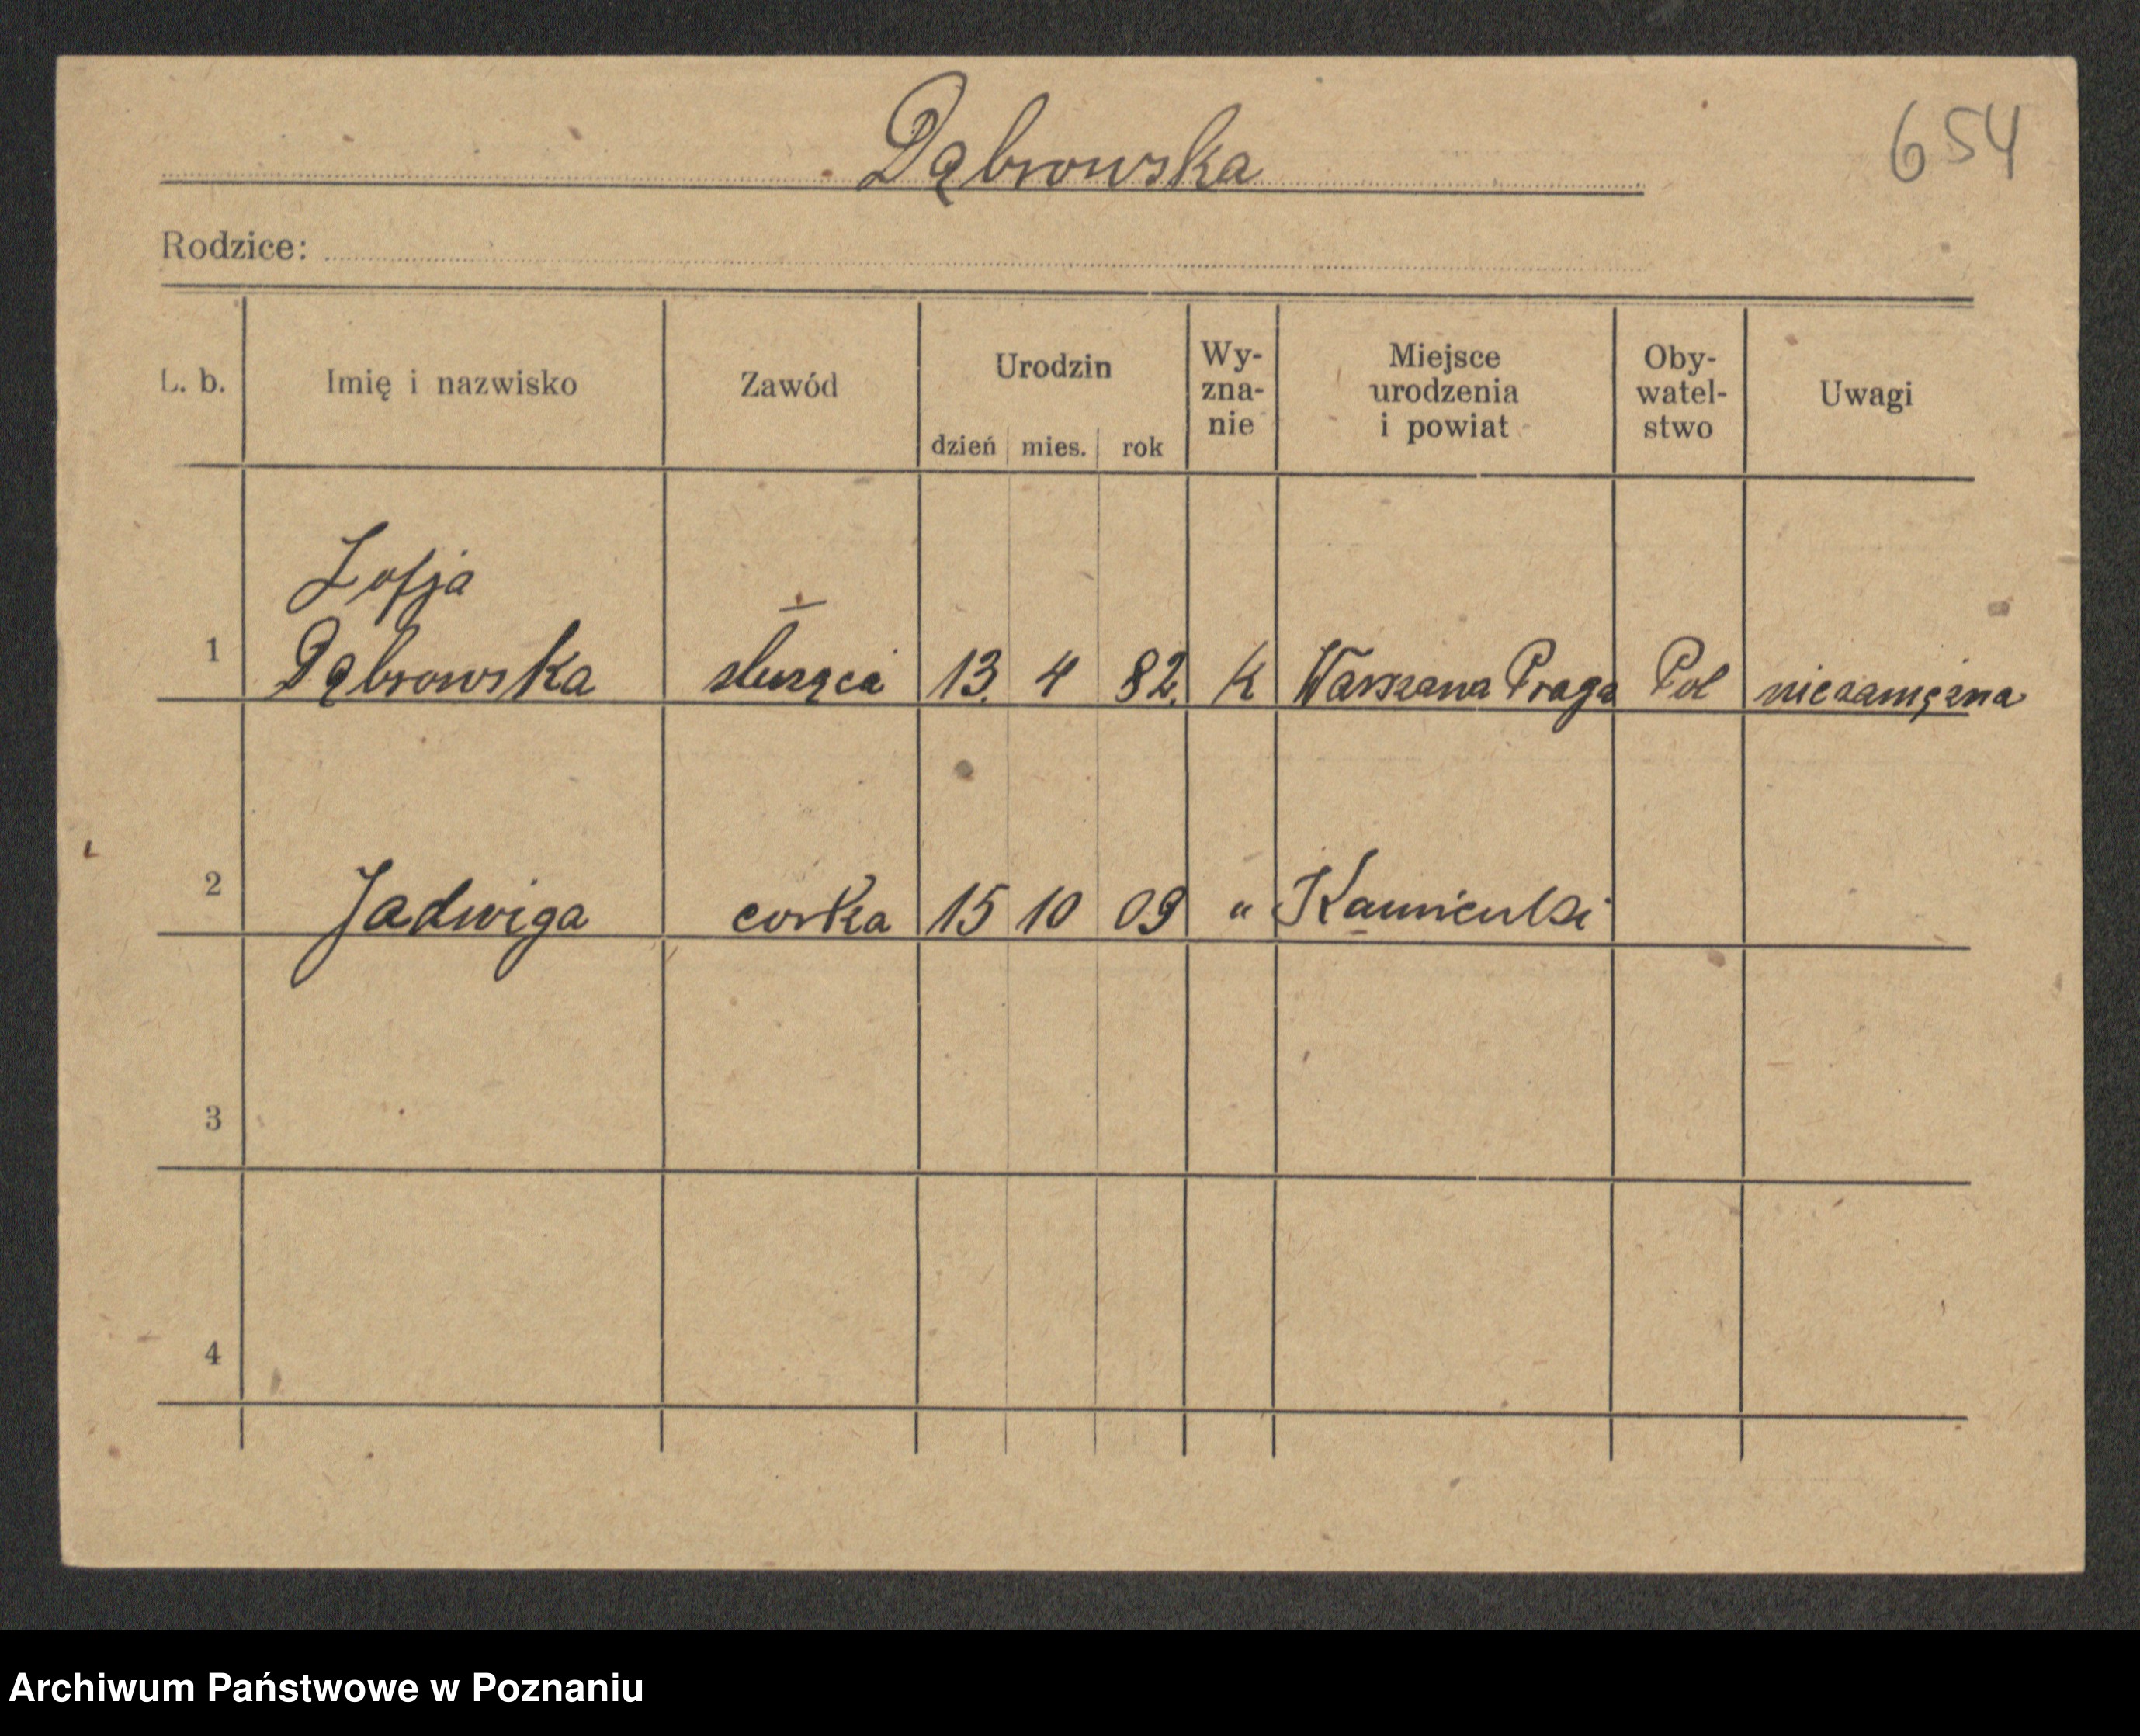 Dąbrowska
654
Rodzice:
L. b.
Imię i nazwisko
Zawód
Urodzin
dzień mies. rok
Wy-
zna-
nie
Miejsce
urodzenia
i powiat
Oby-
watel-
stwo
Uwagi
Zofja
1 Dąbrowska służąca 13. 4 82. K Warszawa Praga Pol niezamężna
2 Jadwiga corka 15 10 09 "
3
4
Archiwum Państwowe w Poznaniu